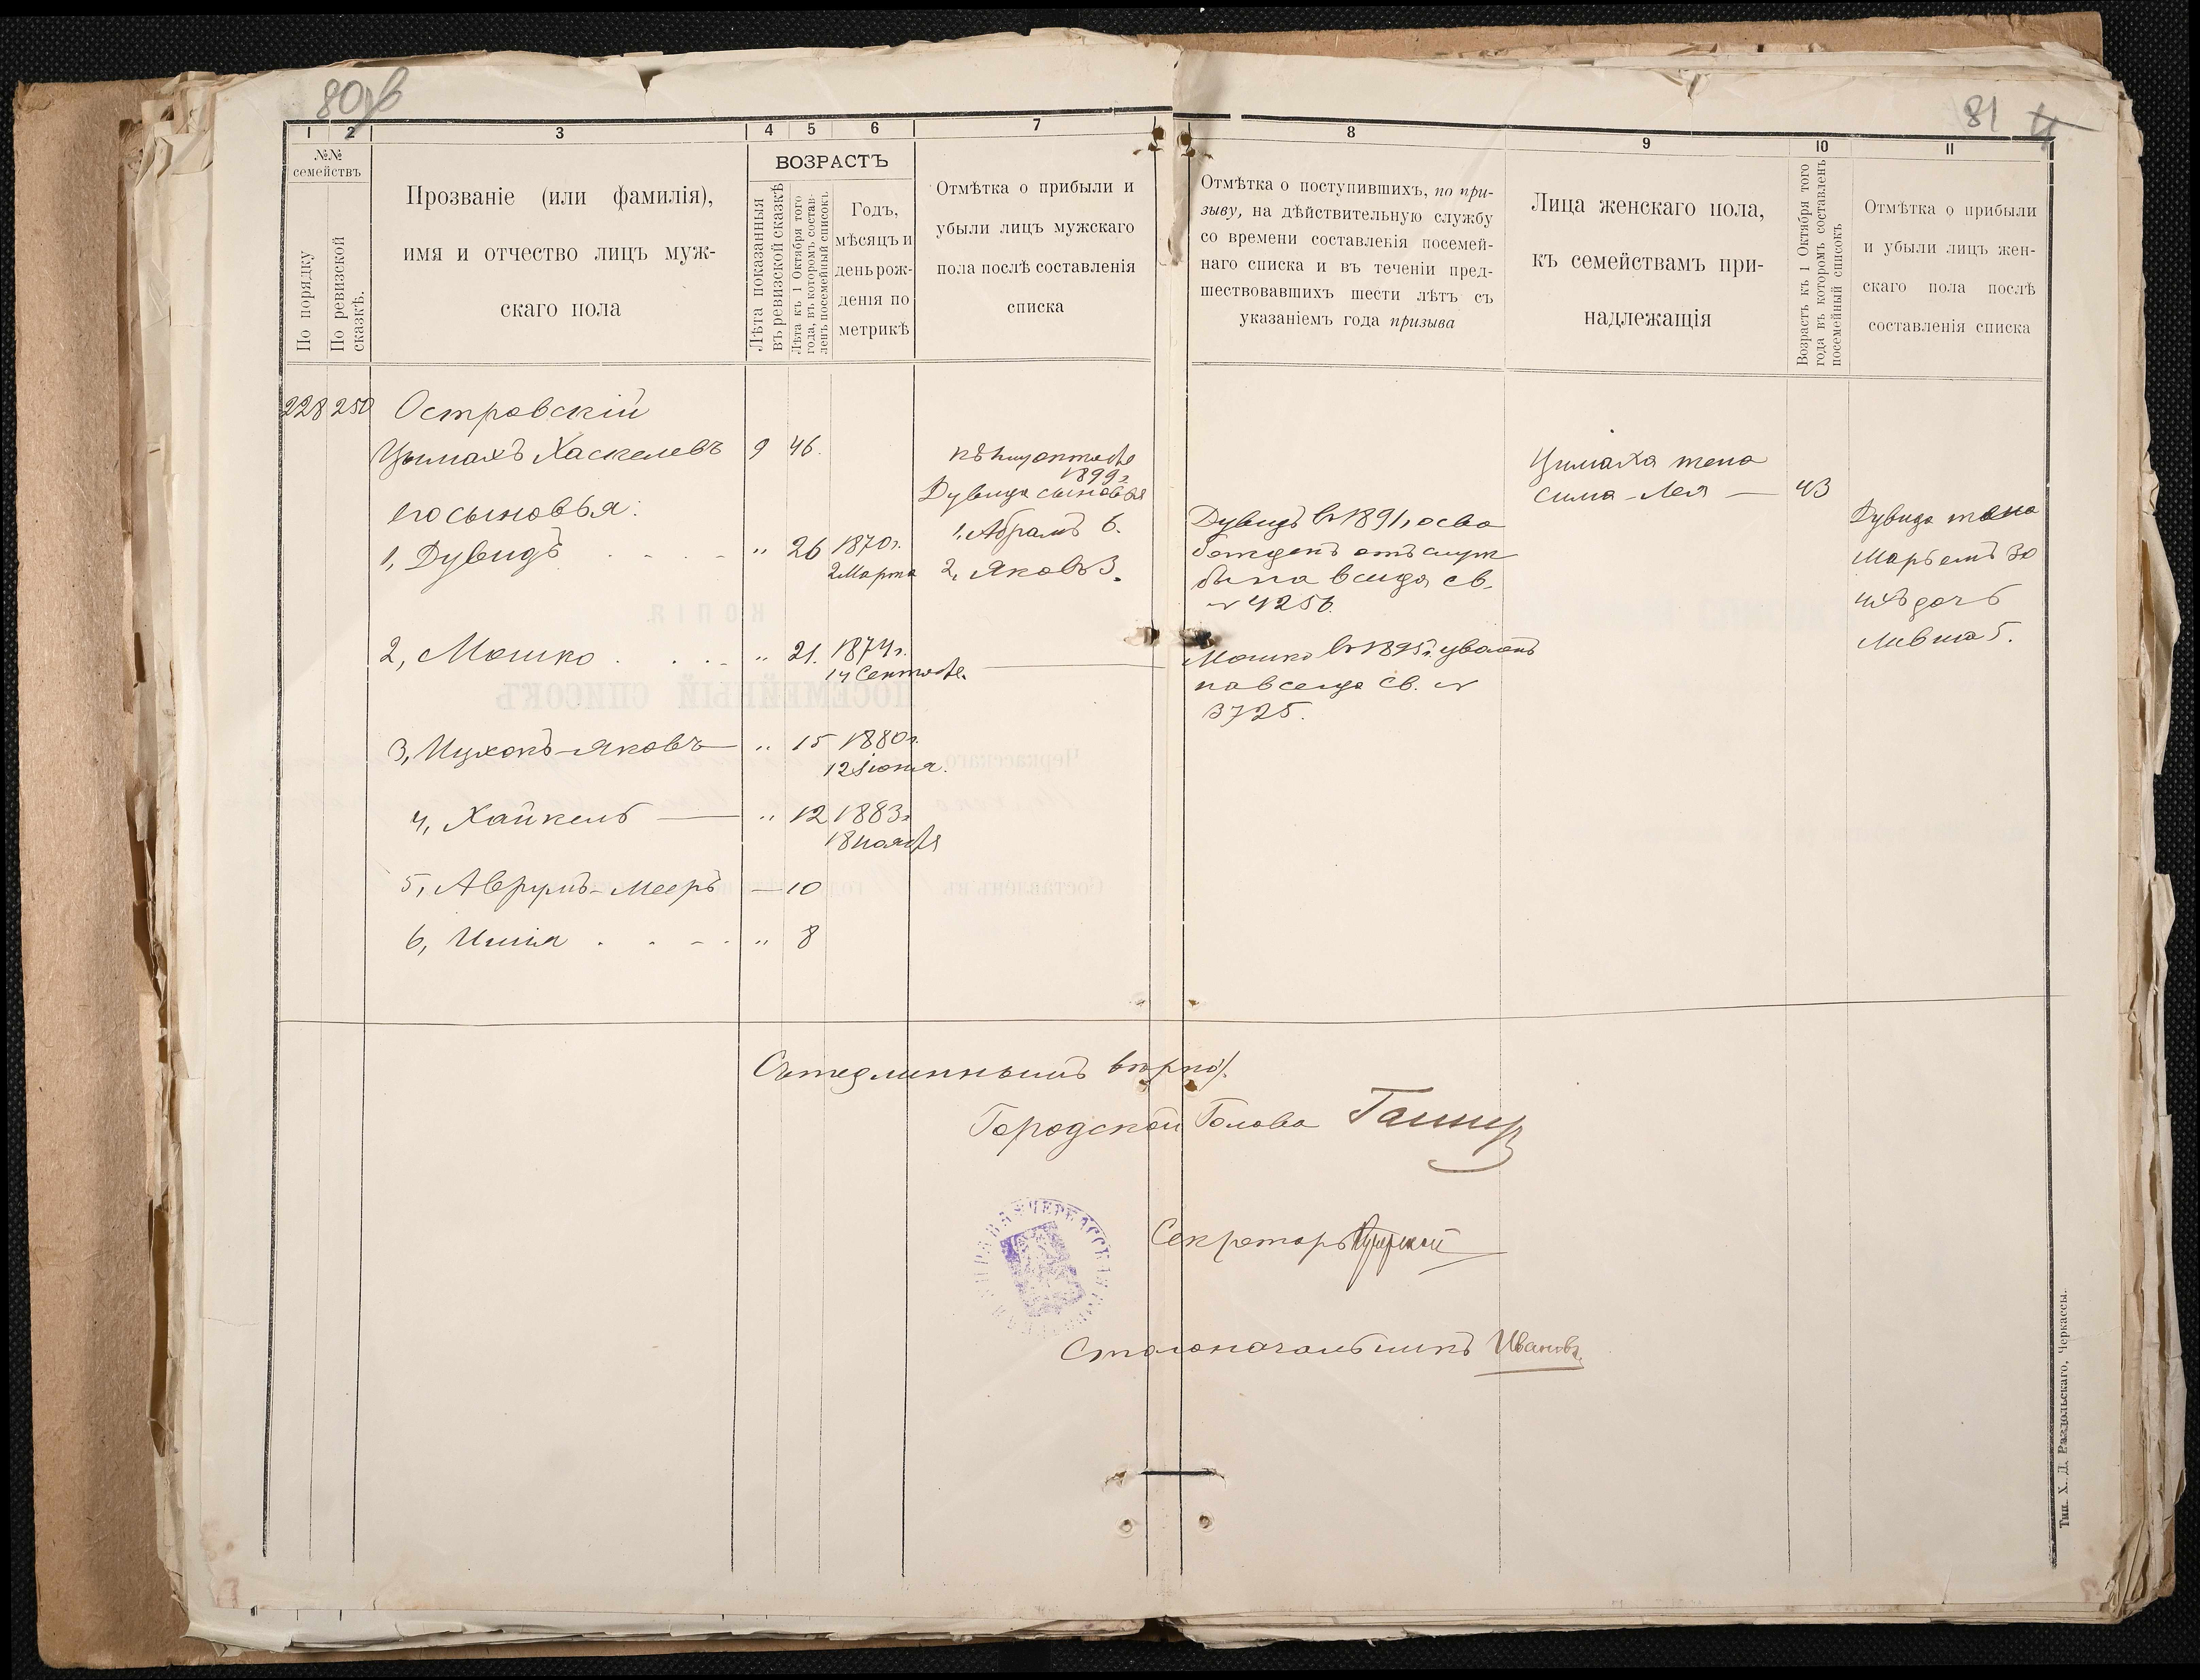 80об
81
1 2 3 4 5 6 7
8 9 10 11
№№
семействъ
По порядку
По ревизской
сказкѣ.
Прозваніе (или фамилія),
имя и отчество лицъ муж-
скаго пола
ВОЗРАСТЪ
Лѣта показанныя
въ ревизской сказкѣ
Лѣта къ 1 Октября того
года, въ которомъ состав-
ленъ посемейный списокъ
Годъ,
мѣсяцъ и
день рож-
денія по
метрикѣ
Отмѣтка о прибыли и
убыли лицъ мужскаго
пола послѣ составленія
списка
Отмѣтка о поступившихъ, по при-
зыву, на дѣйствительную службу
со времени составленія посемей-
наго списка и въ теченіи пред-
шествовавшихъ шести лѣтъ съ
указаніемъ года призыва
Лица женскаго пола,
къ семействамъ при-
надлежащія
Возрастъ къ 1 Октября того
года въ которомъ составленъ
посемейный списокъ
Отмѣтка о прибыли
и убыли лицъ жен-
скаго пола послѣ
составленія списка
228 250 Островскій
Цымахъ Хаскелевъ 9 46.
его сыновья:
1, Дувидъ " 26 1870г.
2 Марта
2, Мошко " 21. 1874г.
14 Сентября
3, Ицхокъ-Яковъ " 15 1880г.
12 Іюня.
4, Хайкель " 12 1883г
18 ноября
5, Аврумъ-Мееръ — 10
6, " 8
къ 1му октября
1899г.
Дувида сыновья
1. Абрамъ 6.
2. Яковъ 3.
Дувидъ въ 1891г. осво
божденъ отъ служ
бы навсегда св.
№ 4256.
Мошко въ 1895г. уволенъ
навсегда св. №
3725.
Цимаха жена
Сима-Лея — 43
Дувида жена
Марьемъ 30
ихъ дочь
5.
Съ подлиннымъ вѣрно:
Городской Голова
Секретарь
Столоначальникъ Ивановъ
ЧЕРКАССКАЯ
УПРАВА
КОПІЯ
ПОСЕМЕЙНЫЙ СПИСОКЪ
Черкасскаго
Составленъ въ
Тип. Х. Д. Раздольскаго, Черкассы.